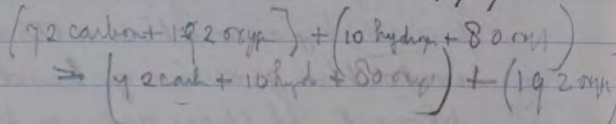 (72 carbon + 192 oxyg) + (10 hydrogn + 80 oxy)
= (72 carb + 10 hyd + 80 oxy) + (192 oxy